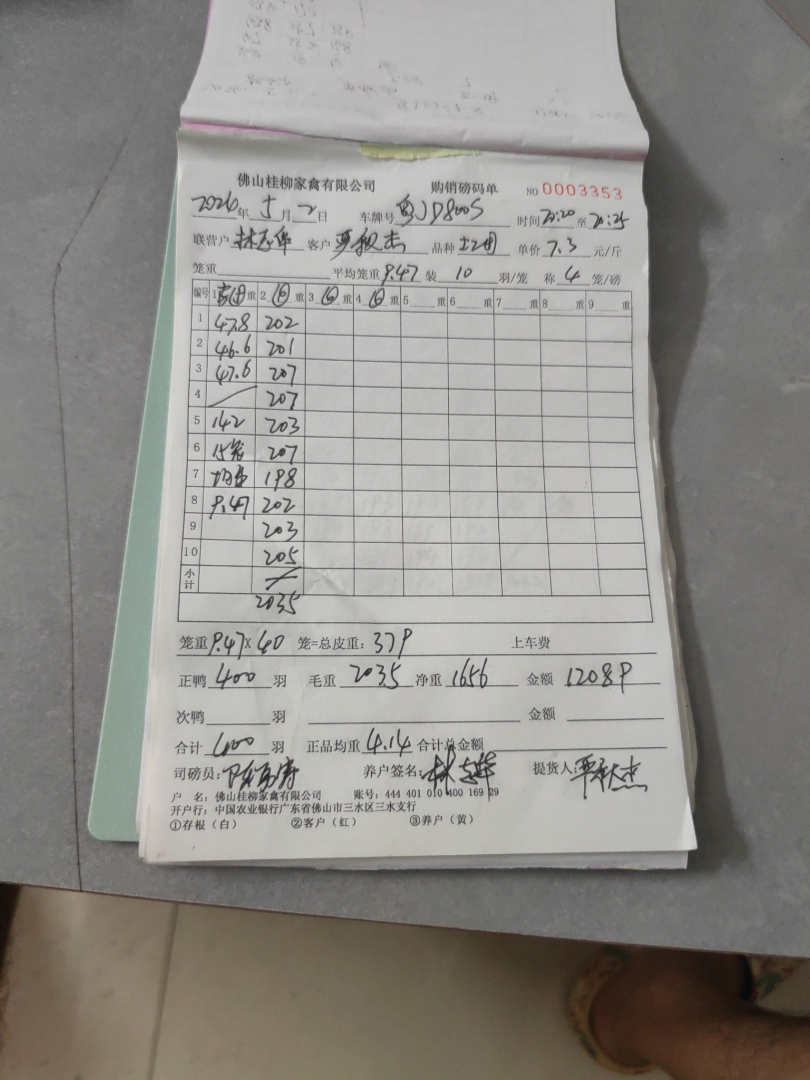 佛山桂柳家禽有限公司 购销磅码单 NO 0003353
2026年5月2日 车牌号 粤JD800S 时间 20:20 至 20:25
联营户 林志华 客户 覃秋杰 品种 土2团 单价 7.3 元/斤
笼重 平均笼重 9.47 装 10 羽/笼 称 4 笼/磅
编号 1 重 2 重 3 重 4 重 5 重 6 重 7 重 8 重 9 重
1 47.8 202
2 46.6 201
3 47.6 207
4 207
5 142 203
6 15笼 207
7 均重 198
8 9.47 202
9 203
10 205
小计
2035
笼重 9.47 X 40 笼=总皮重: 379 上车费
正鸭 400 羽 毛重 2035 净重 1656 金额 12089
次鸭 羽 金额
合计 400 羽 正品均重 4.14 合计总金额
司磅员: 养户签名: 林志华 提货人: 覃秋杰
户 名: 佛山桂柳家禽有限公司 账号: 444 401 010 400 169 29
开户行: 中国农业银行广东省佛山市三水区三水支行
①存根（白） ②客户（红） ③养户（黄）